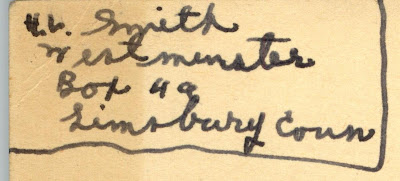 H.L. Smith
Westminster
Box 49
Simsbury Conn